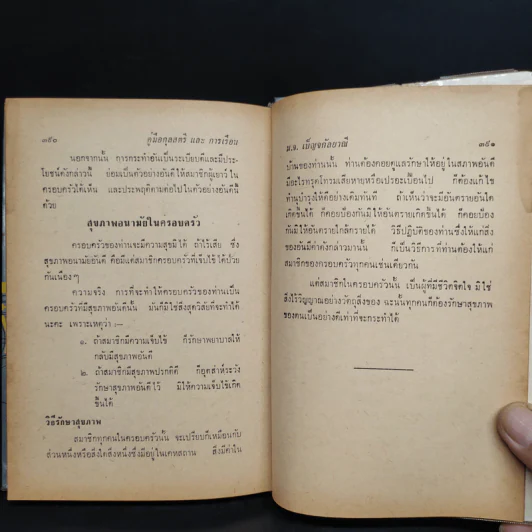 ๓๙๐ คู่มือกุลสตรี และ การเรือน
นอกจากนั้น การกระทำอันเป็นระเบียบดีและมีประ-
โยชน์ดังกล่าวนี้ ย่อมเป็นตัวอย่างอันดีให้สมาชิกผู้เยาว์ ใน
ครอบครัวได้เห็น และประพฤติตามต่อไปในตัวอย่างอันดีนี้
ด้วย
สุขภาพอนามัยในครอบครัว
ครอบครัวของท่านจะมีความสุขมิได้ ถ้าไร้เสีย ซึ่ง
สุขภาพอนามัยอันดี คือมีแต่สมาชิกครอบครัวที่เจ็บไข้ได้ป่วย
กันเนืองๆ
ความจริง การที่จะทำให้ครอบครัวของท่านเป็น
ครอบครัวที่มีสุขภาพอันดีนั้น มันก็มิใช่สิ่งสุดวิสัยที่จะทำได้
นะคะ เพราะเหตุว่า :—
๑. ถ้าสมาชิกมีความเจ็บไข้ ก็รักษาพยาบาลให้
กลับมีสุขภาพอันดี
๒. ถ้าสมาชิกมีสุขภาพปรกติดี ก็อุตส่าห์ระวัง
รักษาสุขภาพอันดีไว้ มิให้ความเจ็บไข้เกิด
ขึ้นได้
วิธีรักษาสุขภาพ
สมาชิกทุกคนในครอบครัวนั้น จะเปรียบก็เหมือนกับ
ส่วนหนึ่งหรือสิ่งใดสิ่งหนึ่งซึ่งมีอยู่ในเคหสถาน สิ่งมีค่าใน
ม.จ. เบ็ญจกัลยาณี ๓๙๑
บ้านของท่านนั้น ท่านต้องคอยดูแลรักษาให้อยู่ในสภาพอันดี
มีอะไรทรุดโทรมเสียหายหรือเปรอะเปื้อนไป ก็ต้องแก้ไข
ทำนุบำรุงให้ดีอย่างเดิมทันที ถ้าเห็นว่าจะมีอันตรายอันใด
เกิดขึ้นได้ ก็คอยป้องกันมิให้อันตรายเกิดขึ้นได้ ก็คอยป้อง
กันมิให้อันตรายใกล้กรายได้ วิธีปฏิบัติของท่านซึ่งให้แก่สิ่ง
ของอันมีค่าดังกล่าวมานั้น ก็เป็นวิธีการที่ท่านต้องให้แก่
สมาชิกของครอบครัวทุกคนเช่นเดียวกัน
แต่สมาชิกในครอบครัวนั้น เป็นผู้ที่มีชีวิตจิตใจ มิใช่
สิ่งไร้วิญญาณอย่างวัตถุสิ่งของ ฉะนั้นทุกคนก็ต้องรักษาสุขภาพ
ของตนเป็นอย่างดีเท่าที่จะกระทำได้